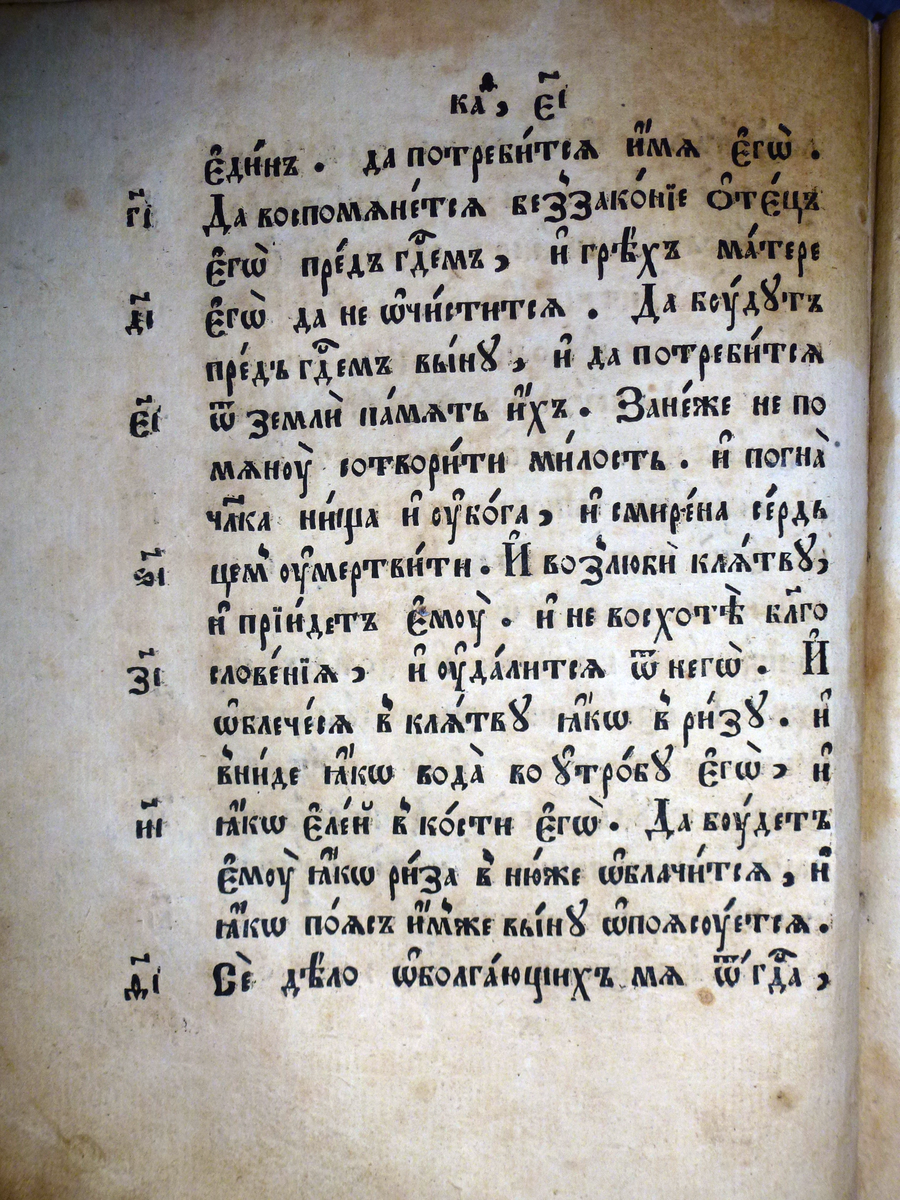 каѳ, є҃і
є҆ди́нъ. да потреби́тсѧ и҆́мѧ є҆гѡ̀.
г҃і Да воспомѧне́тсѧ беззако́нїе ѻ҆те́цъ
є҆гѡ̀ пре́дъ гдⷭ҇емъ, и҆ грѣ́хъ ма́тере
д҃і є҆гѡ̀ да не ѡ҆чи́стится. Да боу́дутъ
пре́дъ гдⷭ҇емъ вы́нꙋ, и҆ да потреби́тсѧ
є҃і ѿ землѝ па́мѧть и҆́хъ. Зане́же не по
мѧноу̀ сотвори́ти ми́лость. и҆ погна̀
чл҃ка ни́ща и҆ оу҆бо́га, и҆ смире́на се́рдь
ѕ҃і цемъ оу҆мертви́ти. И҆ возлюбѝ клѧ́твꙋ,
и҆ прїи́детъ є҆моу̀. и҆ не восхотѣ̀ бл҃го
з҃і слове́нїѧ, и҆ оу҆да́литсѧ ѿ негѡ̀. И҆
ѡ҆блече́сѧ в клѧ́твꙋ ꙗ҆́кѡ в ри́зꙋ. и҆
вни́де ꙗ҆́кѡ вода̀ во ᲂу҆тро́бꙋ є҆гѡ̀, и҆
и҃і ꙗ҆́кѡ є҆ле́й в ко́сти є҆гѡ̀. Да боу́детъ
є҆моу̀ ꙗ҆́кѡ ри́за в ню́же ѡ҆блачи́тсѧ, и҆
ꙗ҆́кѡ по́ѧсъ и҆́мже вы́нꙋ ѡ҆поѧсоу́етсѧ.
д҃і Сѐ дѣ́ло ѡ҆болга́ющихъ мѧ ѿ гдⷭ҇а,